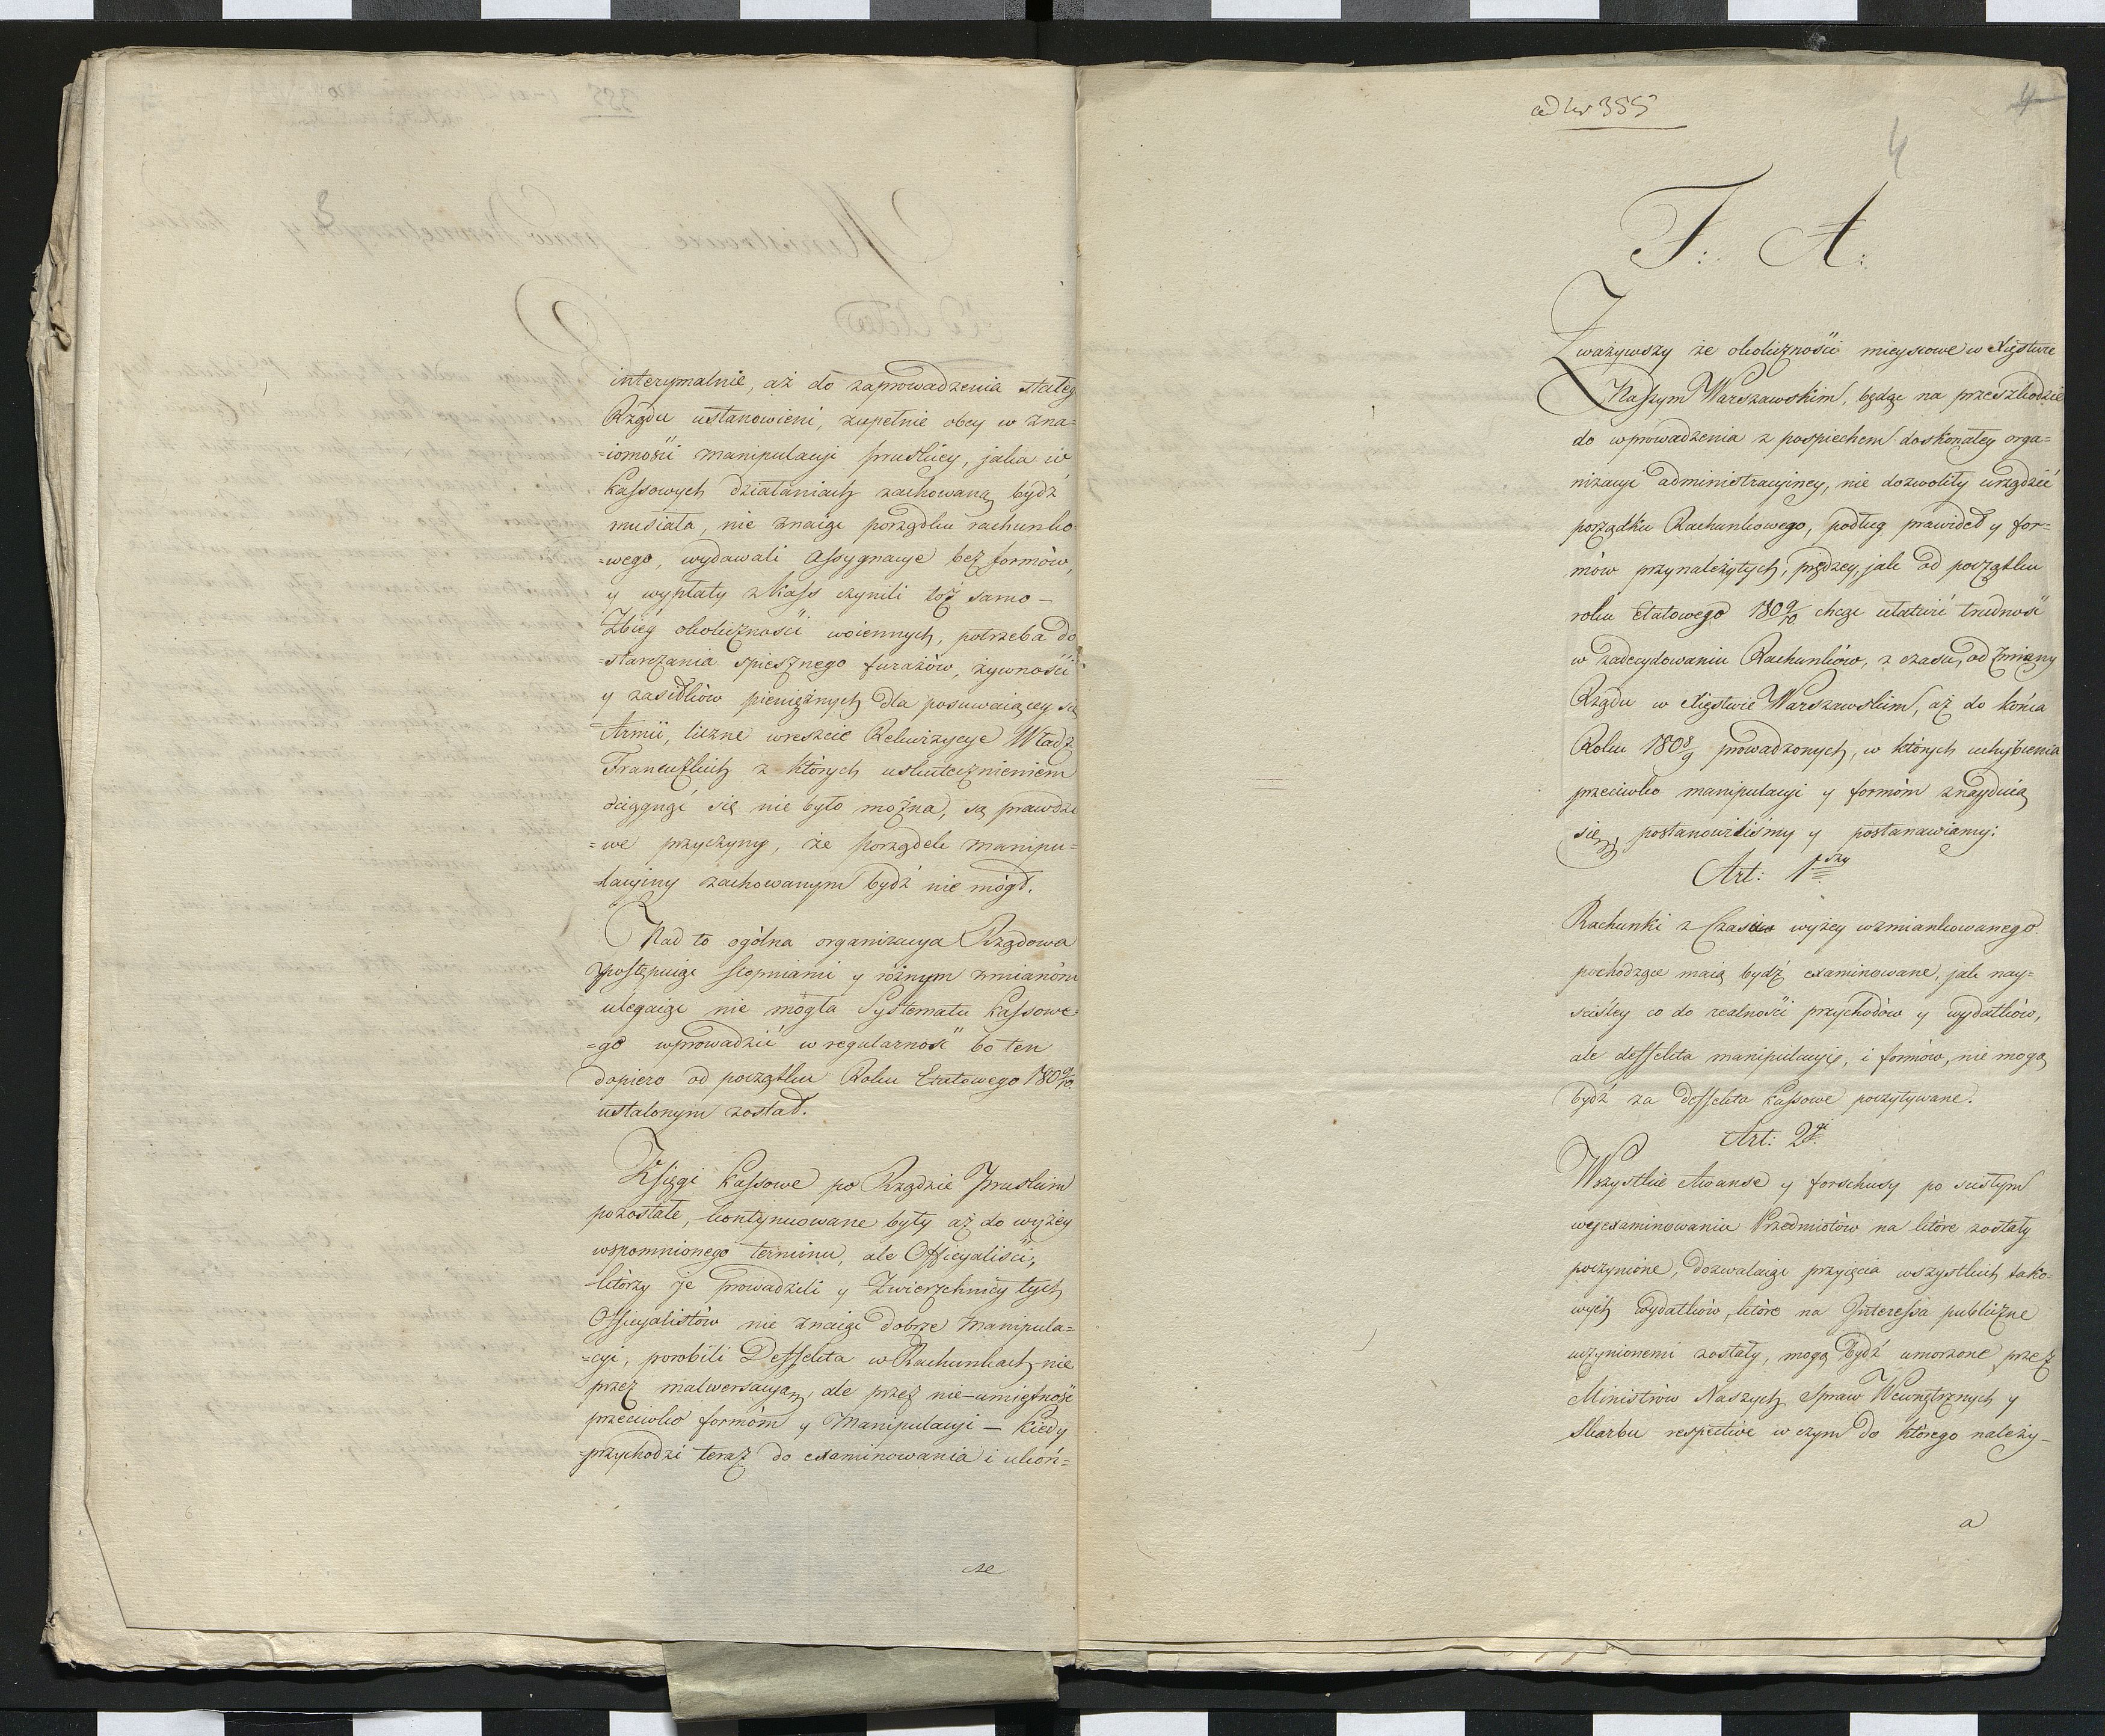 interymalnie, aż do zaprowadzenia stałeg
Rządu ustanowieni, zupełnie obcy w zna=
=iomości manipulacyi pruskiey, jaka w
kassowych działaniach zachowaną bydź
musiała, nie znaiąc porządku rachunko
=wego, wydawali Assygnacye bez formów,
y wypłaty z Kass czynili toż samo –
Zbieg okoliczności woiennych, potrzeba do
=starczania spiesznego furażów, żywności
y zasiłków pieniężnych dla posuwaiącey się
Armii, liczne wreszcie Rekwizycye Władz
Francuzkich z których uskutecznieniem
ociągać się nie było można, są prawdzi
=we przyczyny, że porządek manipu=
lacyiny zachowanym bydź nie mógł.
Nad to ogólna organizacya Rządowa
postępuiąc stopniami y różnym zmianóm
ulegaiąc nie mogła Systematu kassowe=
=go wprowadzić w regularność bo ten
dopiero od początku Roku Etatowego 1809/10.
ustalonym został.
Księgi kassowe po Rządzie Pruskim
pozostałe, kontynuowane były aż do wyżey
wspomnionego terminu, ale Officyaliści,
którzy je prowadzili y Zwierzchnicy tych
Officyalistów nie znaiąc dobrze manipula=
=cyi, porobili Deffekta w Rachunkach nie
przez malwersacyą, ale przez nie-umiętność
przeciwko formóm y Manipulacyi – kiedy
=przychodzi teraz do examinowania i ukoń=
cze
ad Nr 355
4
4
F: A:
Zważywszy że okoliczności mieyscowe w Xięstwie
Naszym Warszawskim, będąc na przeszkodzie
do wprowadzenia z pospiechem doskonałey orga=
nizacyi administracyiney, nie dozwoliły urządzić
porządku Rachunkowego, podług prawideł y for=
mów przynależytych, prędzey, jak od początku
roku Etatowego 1809/10 chcąc ułatwić trudność
w zadecydowaniu Rachunków, z czasu, od zmiany
Rządu w Xięstwie Warszawskim, aż do końca
Roku 1808/9 prowadzonych, w których uchybienia
przeciwko manipulacyi y formóm znayduią
się, postanowiliśmy y postanawiamy:
Art: 1szy
Rachunki z Czasu wyżey wzmiankowanego
pochodzące maią bydź examinowane, jak nay=
ściśley co do realności przychodów y wydatków,
ale deffekta manipulacyi, i formów, nie mogą
bydź za deffekta kassowe poczytywane.
Art: 2gi
Wszystkie Awanse y forschusy po scisłym
wyexaminowaniu Przedmiotów na które zostały
poczynione, dozwalaiąc przyięcia wszystkich tako=
wych wydatków, które na Interessa publiczne
uczynionemi zostały, mogą bydź umorzone przez
Ministrów Naszych Spraw Wewnętrznych y
Skarbu respective w czym do którego należy –
a